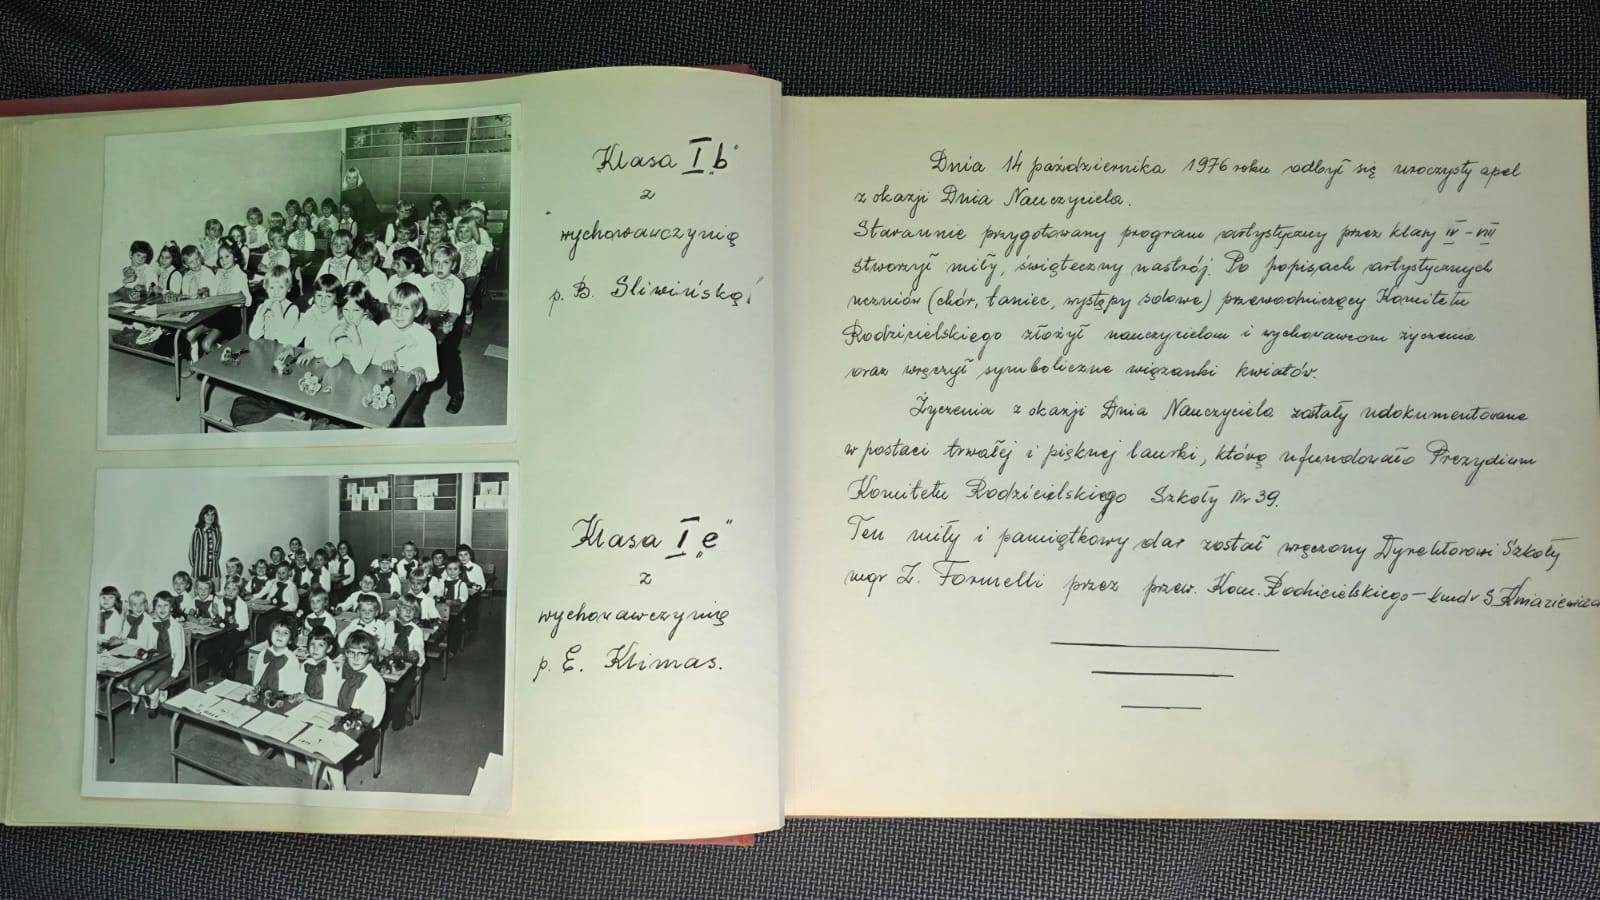 Klasa I „b"
z
wychowawczynią
p. B. Śliwińską
Klasa I „e"
z
wychowawczynią
p. E. Klimas.
Dnia 14 października 1976 roku odbył się uroczysty apel
z okazji Dnia Nauczyciela.
Starannie przygotowany program artystyczny przez klasy IV - VIII
stworzył miły, świąteczny nastrój. Po popisach artystycznych
uczniów (chór, taniec, występy solowe) przewodniczący Komitetu
Rodzicielskiego złożył nauczycielom i wychowawcom życzenia
oraz wręczył symboliczne wiązanki kwiatów.
Życzenia z okazji Dnia Nauczyciela zostały udokumentowane
w postaci trwałej i pięknej laurki, którą ufundowało Prezydium
Komitetu Rodzicielskiego Szkoły Nr 39.
Ten miły i pamiątkowy dar został wręczony Dyrektorowi Szkoły
mgr Z. Formelli przez przew. Kom. Rodzicielskiego - kmdr S. Kniaziewicza